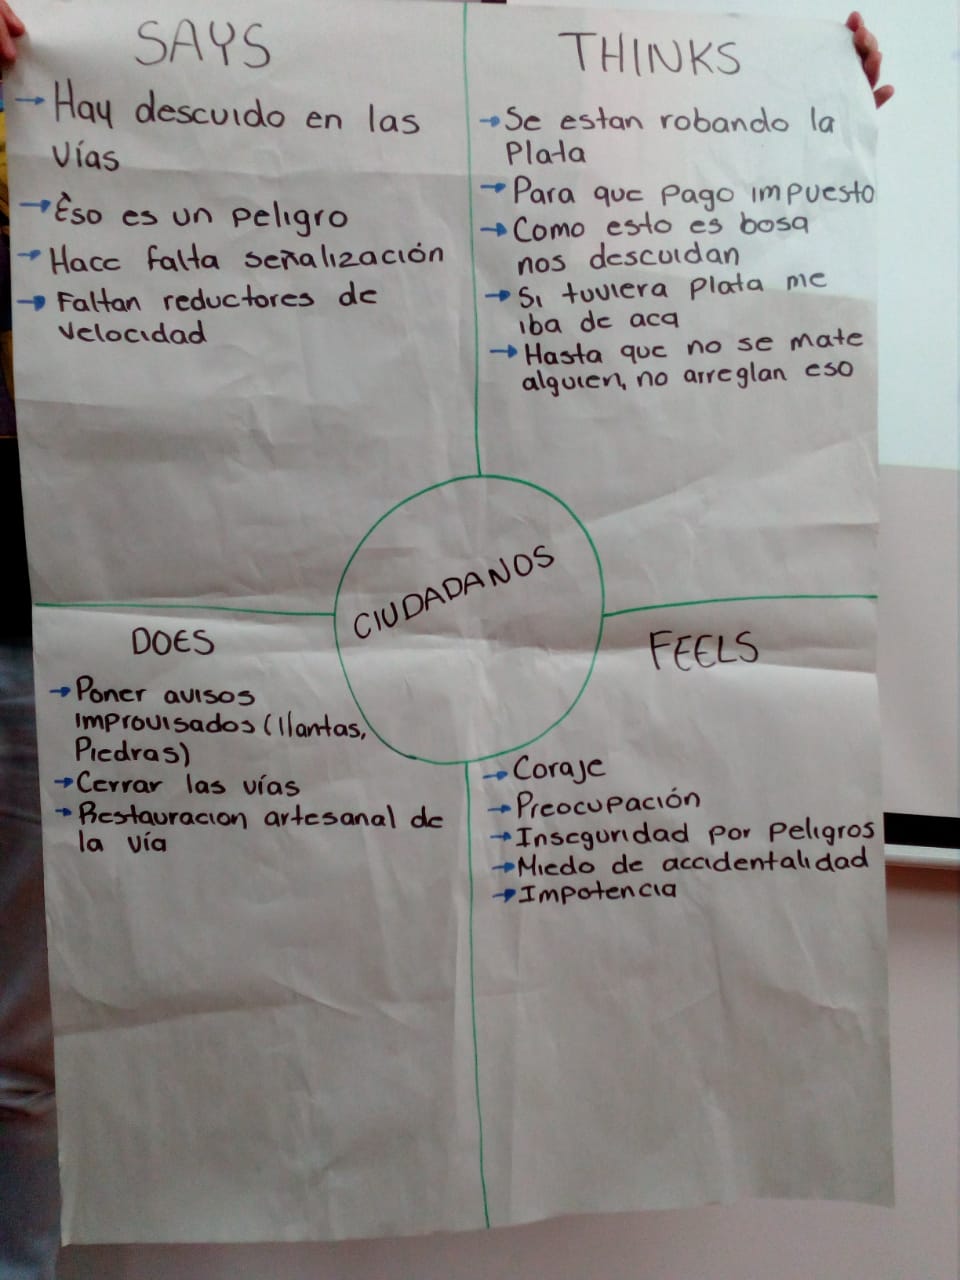 SAYS
→ Hay descuido en las
vías
→ Eso es un peligro
→ Hace falta señalización
→ Faltan reductores de
velocidad
THINKS
→ Se estan robando la
Plata
→ Para que pago impuesto
→ Como esto es bosa
nos descuidan
→ Si tuviera plata me
iba de aca
→ Hasta que no se mate
alguien, no arreglan eso
CIUDADANOS
DOES
→ Poner avisos
improvisados (llantas,
Piedras)
→ Cerrar las vías
→ Restauracion artesanal de
la vía
FEELS
→ Coraje
→ Preocupación
→ Inseguridad por peligros
→ Miedo de accidentalidad
→ Impotencia